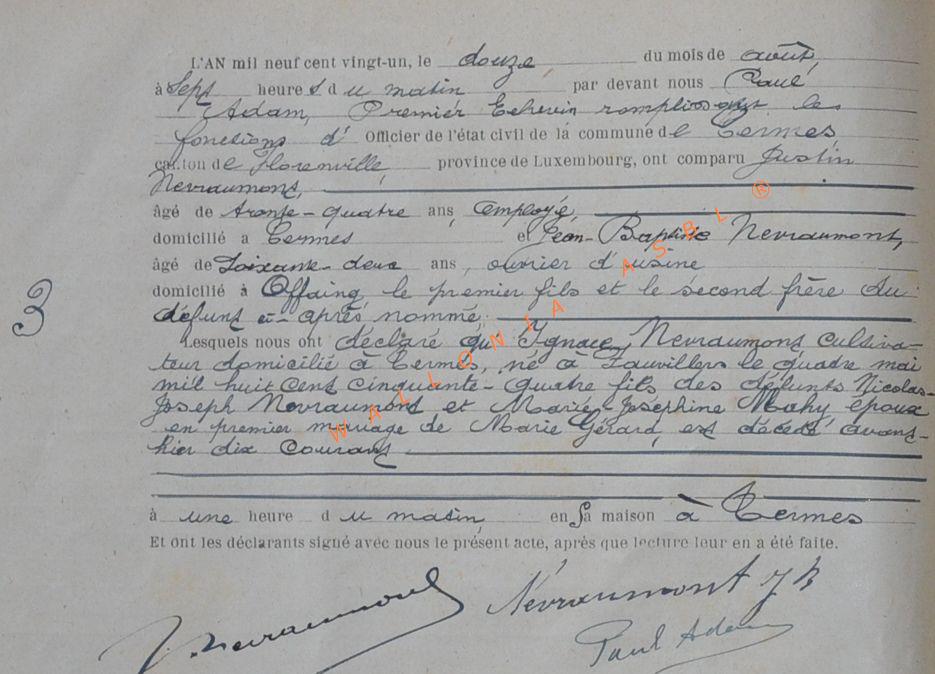 L'AN mil neuf cent vingt-un, le douze du mois de août,
à Sept heures du matin par devant nous Paul
Adam, Premier Echevin remplissant les
fonctions d' Officier de l'état civil de la commune de Termes
canton de Florenville, province de Luxembourg, ont comparu Justin
Nevraumont,
âgé de trente-quatre ans employé,
domicilié a Termes et Jean-Baptiste Nevraumont,
âgé de Soixante-deux ans, ouvrier d'usine
domicilié à Offaing, le premier fils et le second frère du
défunt ci-après nommé;
3
Lesquels nous ont déclaré qu' Ignace Nevraumont cultiva-
teur domicilié à Termes, né à Fauvillers le quatre mai
mil huit cent cinquante-quatre fils des défunts Nicolas-
Joseph Nevraumont et Marie-Joséphine Mahy, époux
en premier mariage de Marie Gérard, est décédé avant-
hier dix courant
à une heure du matin, en Sa maison à Termes
Et ont les déclarants signé avec nous le présent acte, après que lecture leur en a été faite.
J. Nevraumont Névraumont J B
Paul Adam
WALLONIA ASBL ®